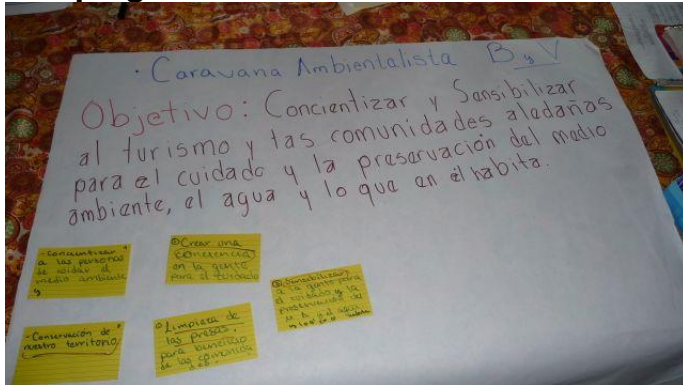 · Caravana Ambientalista B y V
Objetivo: Concientizar y Sensibilizar
al turismo y las comunidades aledañas
para el cuidado y la preservación del medio
ambiente, el agua y lo que en él habita.
- Concientizar
a las personas
de cuidar el
medio ambiente
y
Crear una
conciencia
en la gente
para el cuidado
Sensibilizar
a la gente para
el cuidado y la
preservación del
M. A, el agua
y lo que
- Conservación de
nuestro territorio
Limpieza de
las presas,
para beneficio
de las comunida
des.